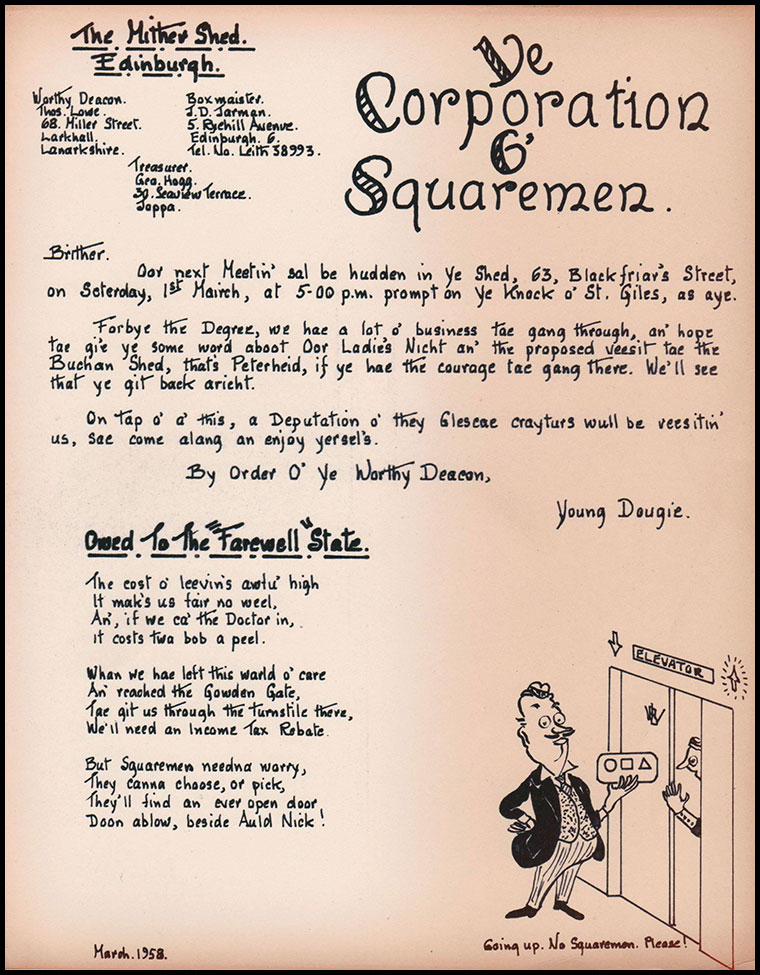 The Mither Shed.
Edinburgh.
Ye
Corporation
O'
Squaremen.
Worthy Deacon.
Thos. Lowe.
68. Miller Street.
Larkhall.
Lanarkshire.
Boxmaister.
J.D. Jarman.
5. Ryehill Avenue.
Edinburgh. 6.
Tel. No. Leith 38993.
Treasurer.
Geo. Hogg.
30. Seaview Terrace.
Joppa.
Brither.
Oor next Meetin' sal be hudden in Ye Shed, 63, Blackfriar's Street,
on Seterday, 1st Mairch, at 5-00 p.m. prompt on Ye Knock o' St. Giles, as aye.
Forbye the Degree, we hae a lot o' business tae gang through, an' hope
tae gi'e ye some word aboot Oor Ladie's Nicht an' the proposed veesit tae the
Buchan Shed, that's Peterheid, if ye hae the courage tae gang there. We'll see
that ye git back aricht.
On tap o' a' this, a Deputation o' they Glescae crayturs wull be veesitin'
us, sae come alang an enjoy yersel's.
By Order O' Ye Worthy Deacon,
Young Dougie.
Owed To The "Farewell" State.
The cost o' leevin's awfu' high
It mak's us fair no weel,
An', if we ca' the Doctor in,
it costs twa bob a peel.
Whan we hae left this warld o' care
An' reached the Gowden Gate,
Tae git us through the turnstile there,
We'll need an Income Tax Rebate.
But Squaremen needna worry,
They canna choose, or pick,
They'll find an ever open door
Doon ablow, beside Auld Nick!
ELEVATOR
Going up. No Squaremen. Please!
March. 1958.